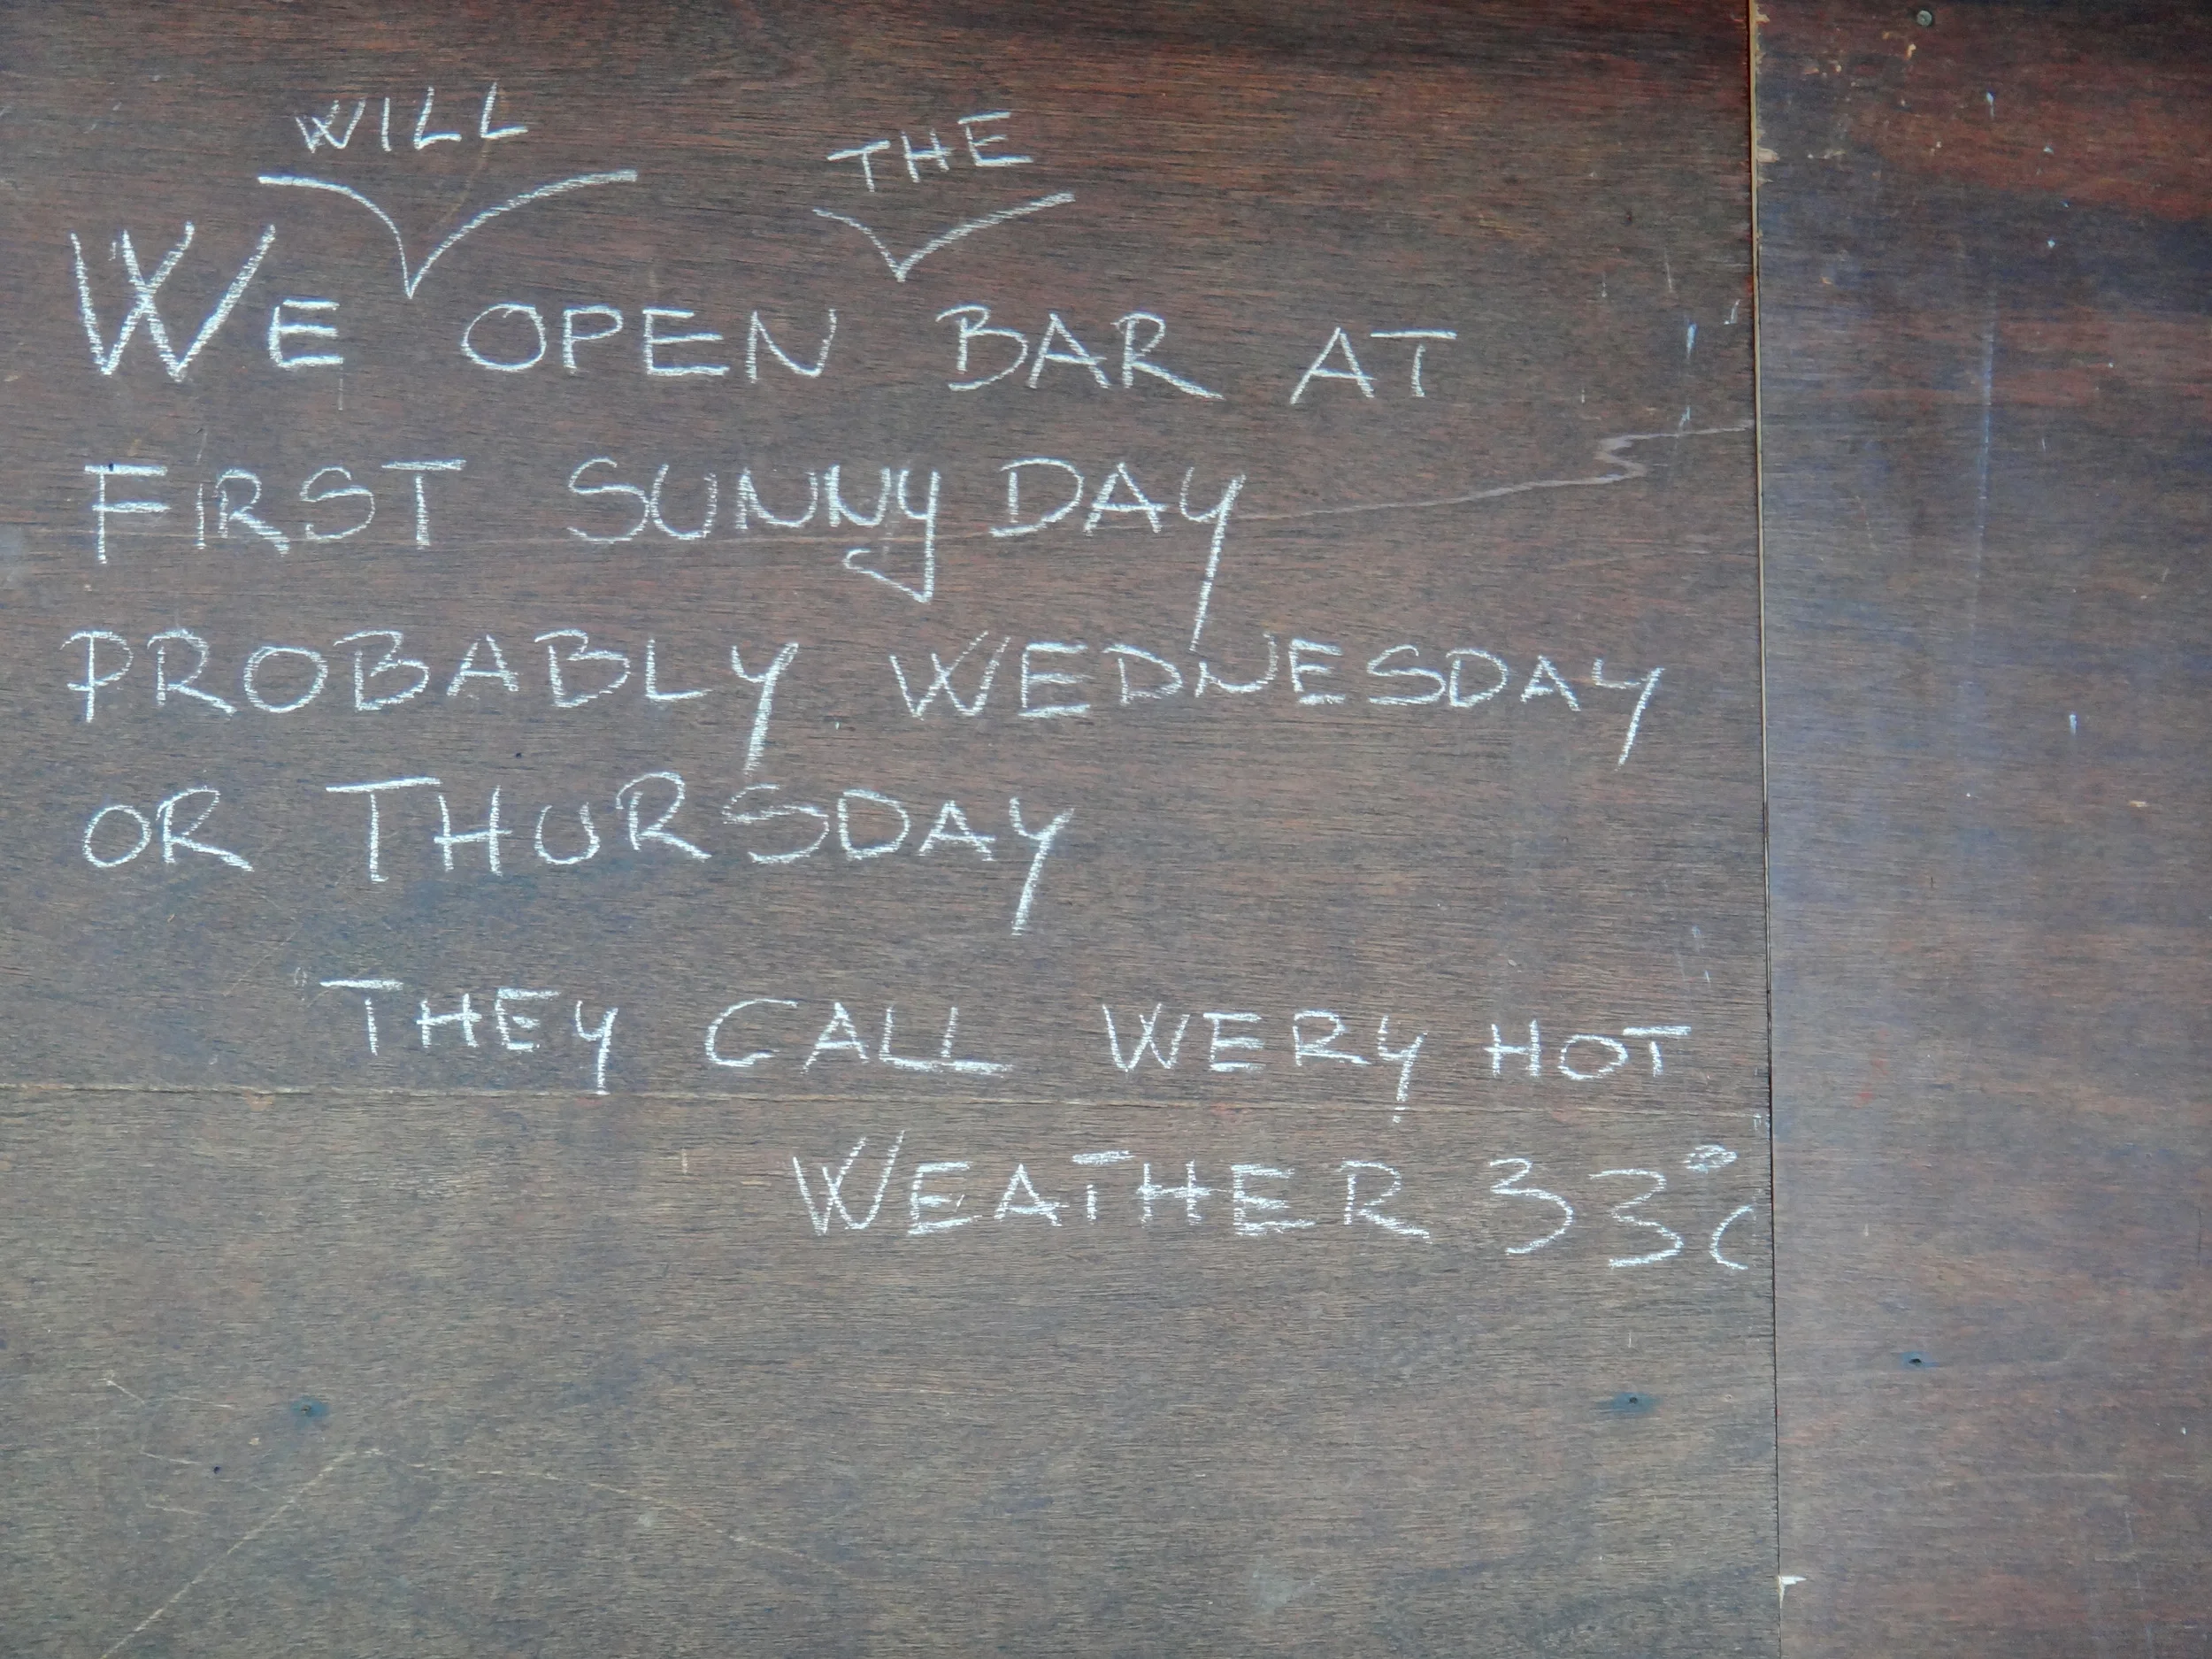 WILL THE
WE OPEN BAR AT
FIRST SUNNY DAY
PROBABLY WEDNESDAY
OR THURSDAY
THEY CALL WERY HOT
WEATHER 33°C